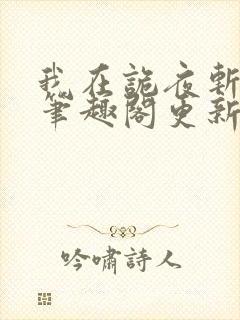 我在詭夜斬
筆趣閣更新
吟嘯詩人